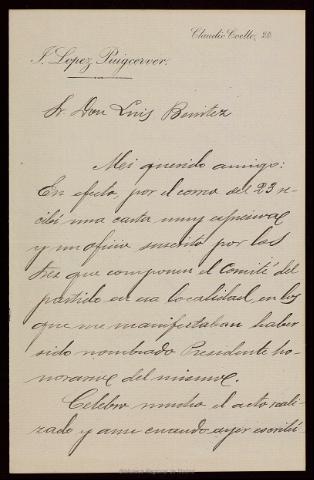 Claudio Coello, 20.
J. Lopez Puigcerver.
Sr. Don Luis Benitez
Mi querido amigo:
En efecto, por el correo del 23 re-
cibí una carta muy expresiva
y un oficio suscrito por los
tres que componen el Comité del
partido en esa localidad, en los
que me manifestaban haber
sido nombrado Presidente ho-
norario del mismo.
Celebro mucho el acto reali-
zado y aun cuando ayer escribí